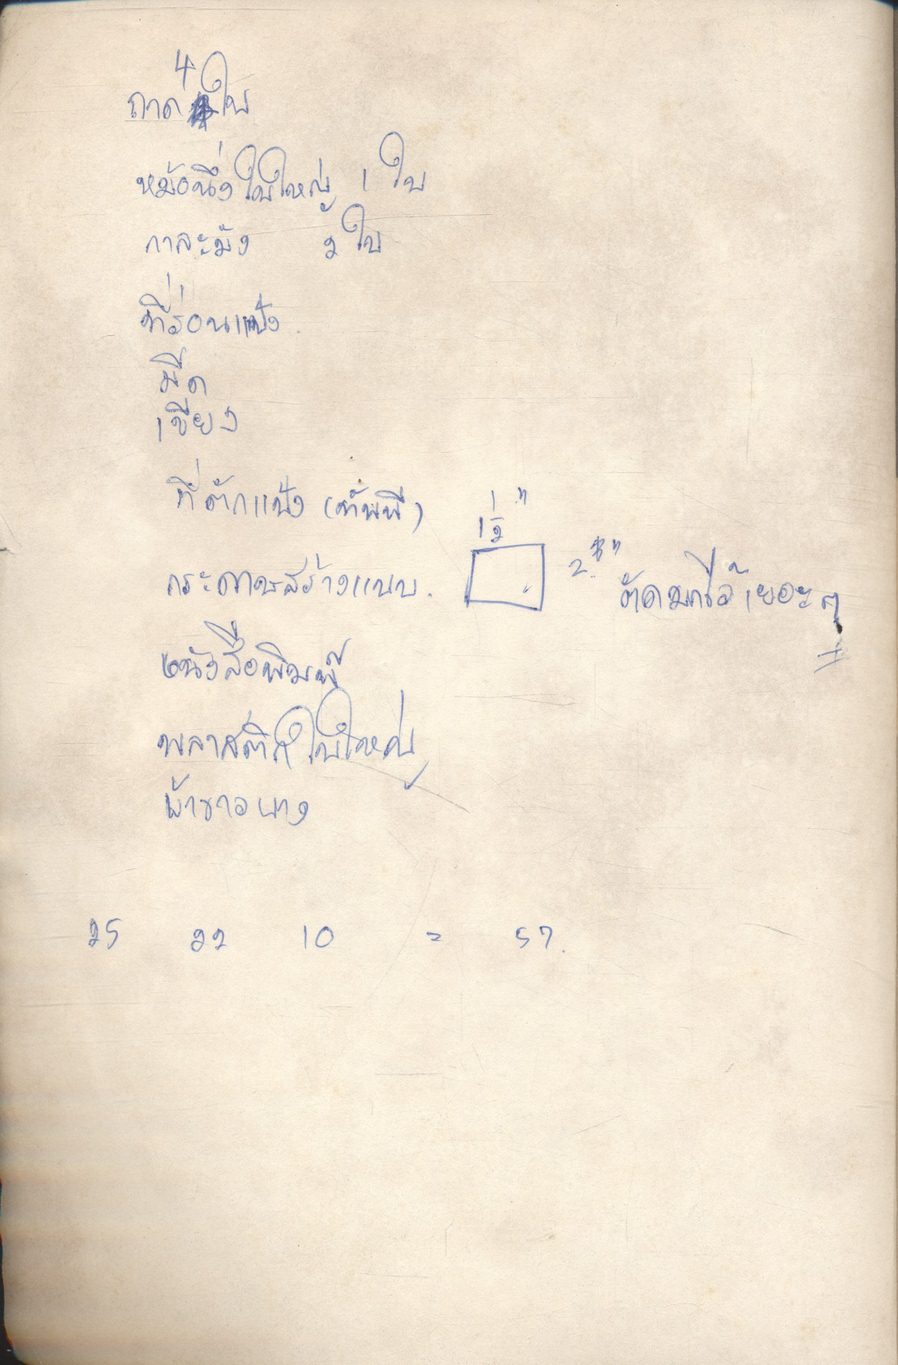 ถาด 4 ใบ
หม้อนึ่งใบใหญ่ 1 ใบ
กาละมัง 2 ใบ
ที่ร่อนแป้ง
มีด
เขียง
ที่ตักแป้ง (ทัพพี)
กระดาษสร้างแบบ. 1½" 2" ตัดมาไว้เยอะๆ
หนังสือพิมพ์
พลาสติกใบใหญ่
ผ้าขาวบาง
25 22 10 = 57.